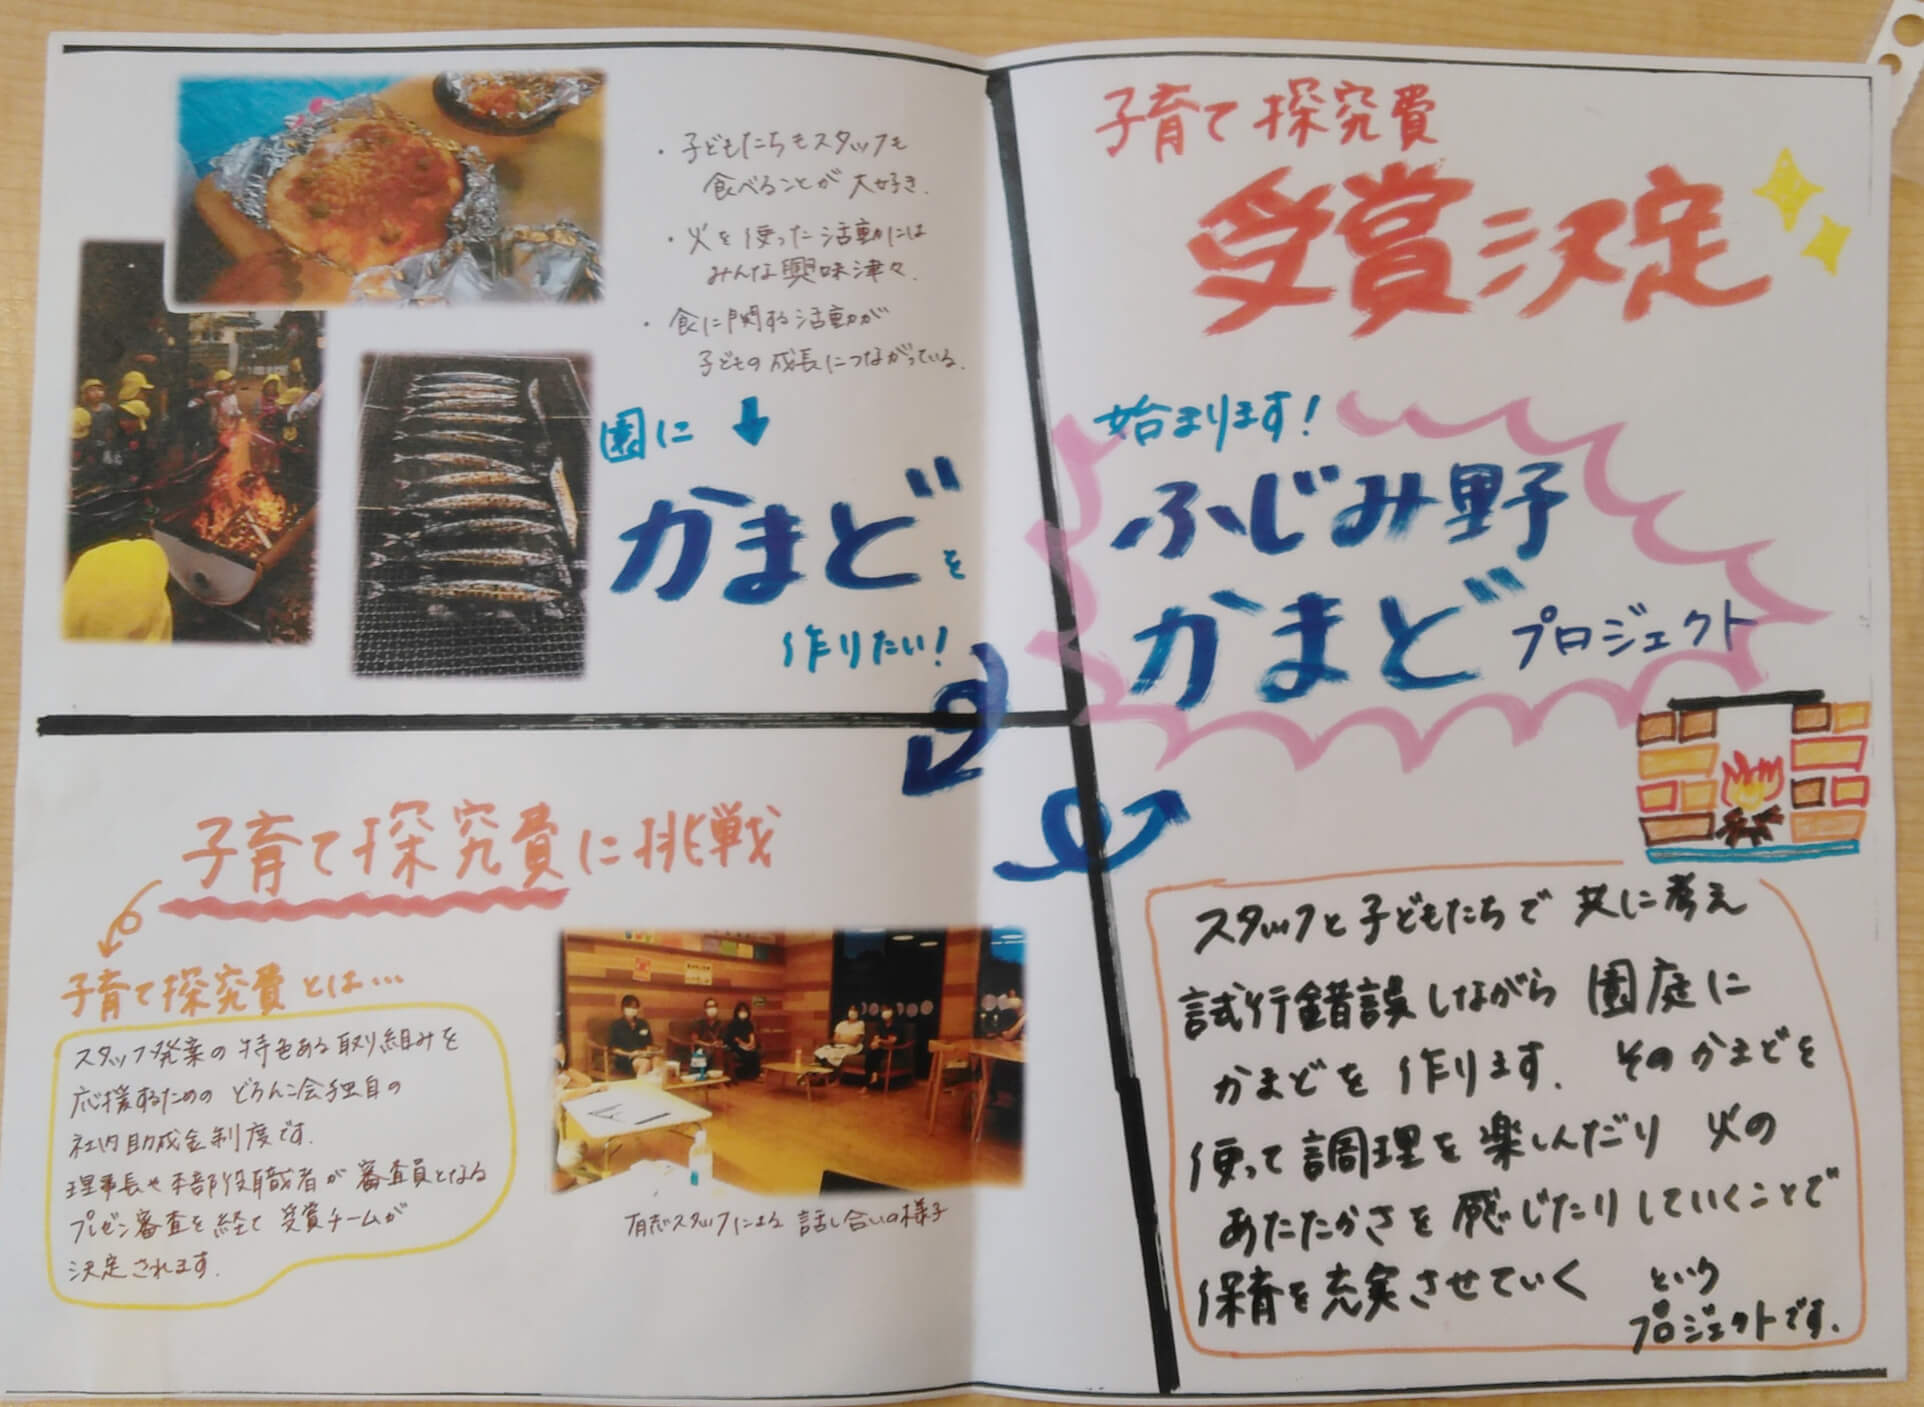 ・子どもたちもスタッフも
食べることが大好き.
・火を使った活動には
みんな興味津々.
・食に関する活動が
子どもの成長につながっている.
園に
かまどを
作りたい!
子育て探究費に挑戦
子育て探究費とは…
スタッフ発案の特色ある取り組みを
応援するためのどろんこ会独自の
社内助成金制度です.
理事長や本部役職者が審査員となる
プレゼン審査を経て受賞チームが
決定されます.
有志スタッフによる話し合いの様子
子育て探究費
受賞決定
始まります!
ふじみ野
かまどプロジェクト
スタッフと子どもたちで共に考え
試行錯誤しながら園庭に
かまどを作ります. そのかまどを
使って調理を楽しんだり火の
あたたかさを感じたりしていくことで
保育を充実させていく という
プロジェクトです.